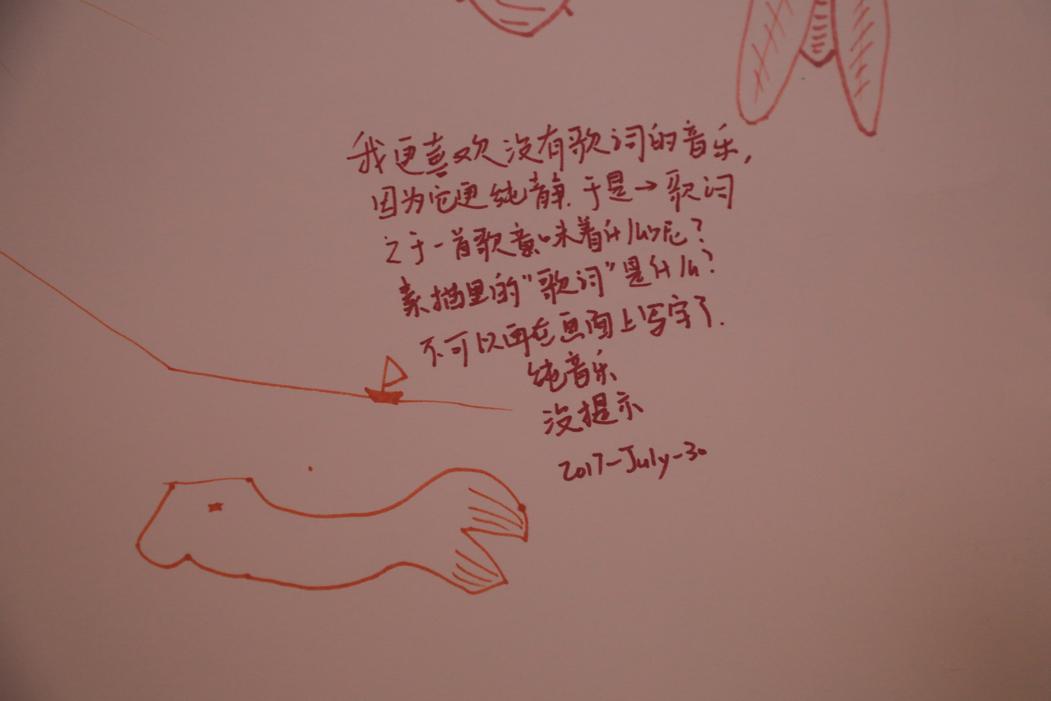 我更喜欢没有歌词的音乐,
因为它更纯静.于是→歌词
之于一首歌意味着什么呢?
素描里的"歌词"是什么?
不可以再在画面上写字了.
纯音乐
没提示
2017-July-30